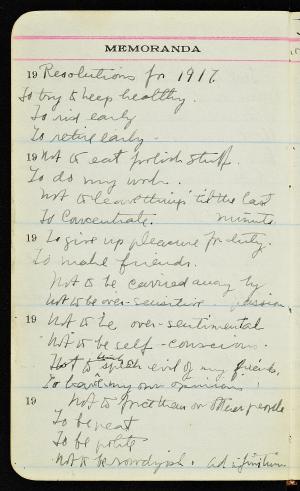 MEMORANDA
19 Resolutions for 1917
To try to keep healthy.
To rise early
To retire early.
19 Not to eat foolish stuff.
To do my work.
Not to leave things till the last
To Concentrate. minute
19 To give up pleasure for duty.
To make friends.
Not to be carried away by
Not to be over-sensitive passion
19 Not to be over-sentimental
Not to be self-conscious.
Not to think evil of my friends.
To have my own opinions!
19 Not to force them on other people
To be neat
To be polite
Not to be rowdyish. ad infinitum